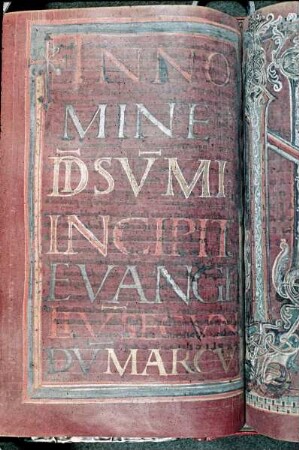 INNO
MINE
D̄I SV̄MI
INCIPIT
EVANGE
DV̄ MARCV